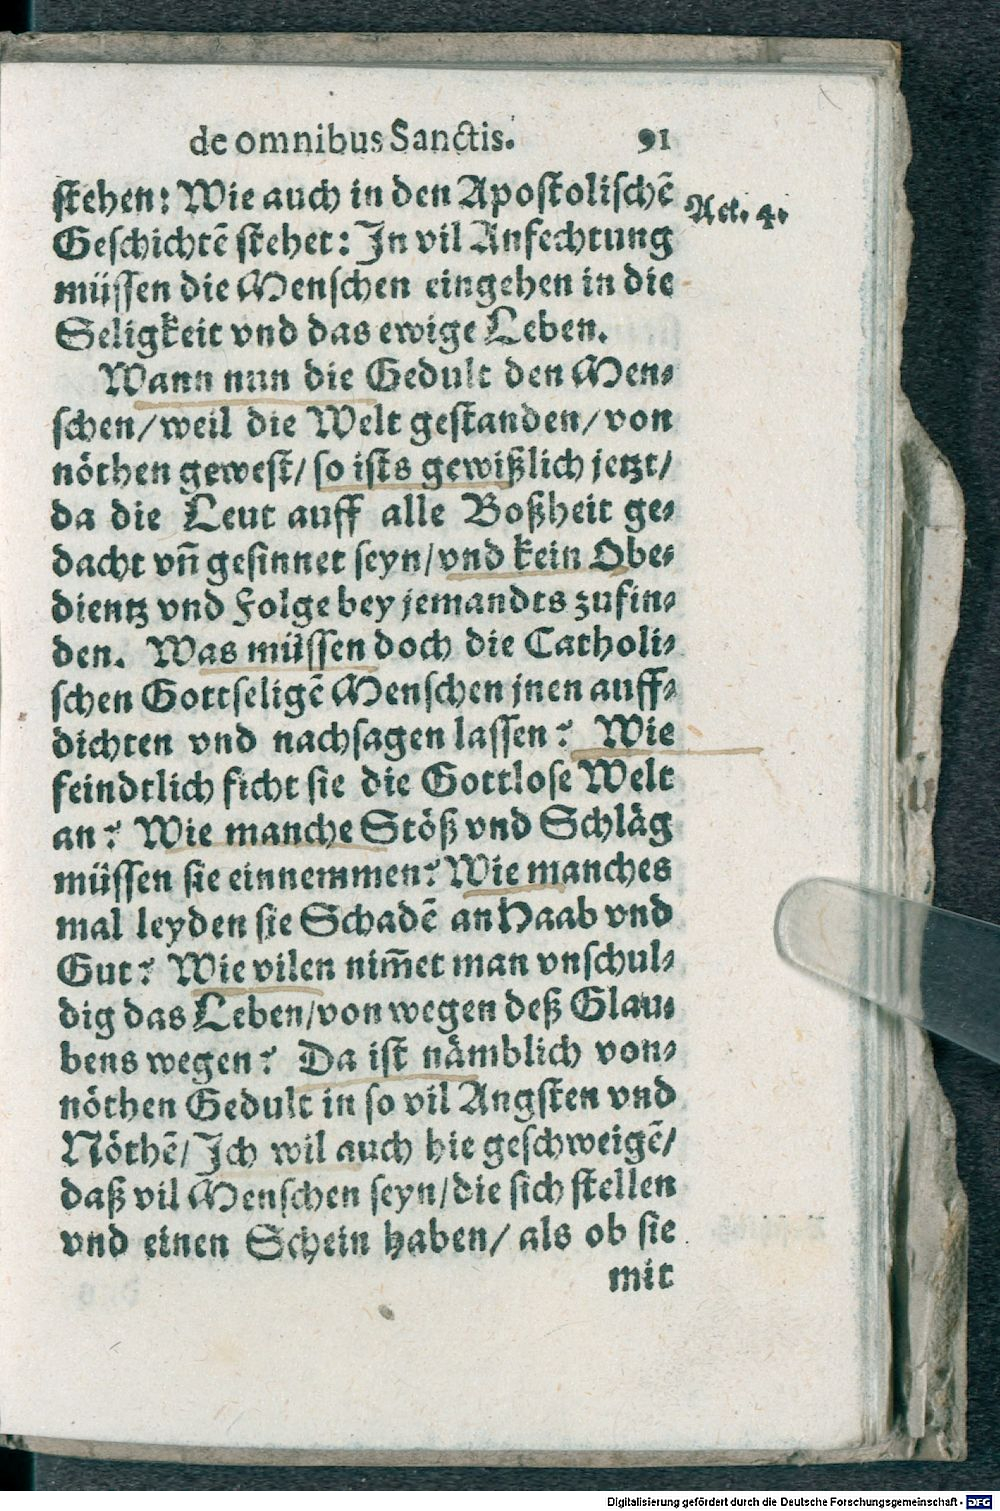 de omnibus Sanctis. 91
stehen: Wie auch in den Apostolischẽ
Act. 4.
Geschichtẽ stehet: In vil Anfechtung
müssen die Menschen eingehen in die
Seligkeit vnd das ewige Leben.
Wann nun die Gedult den Men⸗
schen/weil die Welt gestanden/von
nöthen gewest/ so ists gewißlich jetzt/
da die Leut auff alle Boßheit ge⸗
dacht vñ gesinnet seyn/vnd kein Obe⸗
dientz vnd Folge bey jemandts zufin⸗
den. Was müssen doch die Catholi⸗
schen Gottseligẽ Menschen jnen auff⸗
dichten vnd nachsagen lassen? Wie
feindtlich ficht sie die Gottlose Welt
an? Wie manche Stöß vnd Schläg
müssen sie einnemmen? Wie manches
mal leyden sie Schadẽ an Haab vnd
Gut? Wie vilen nim̃et man vnschul⸗
dig das Leben/von wegen deß Glau⸗
bens wegen? Da ist nämblich von⸗
nöthen Gedult in so vil Angsten vnd
Nöthẽ/ Ich wil auch hie geschweigẽ/
daß vil Menschen seyn/die sich stellen
vnd einen Schein haben/ als ob sie
mit
Digitalisierung gefördert durch die Deutsche Forschungsgemeinschaft - DFG